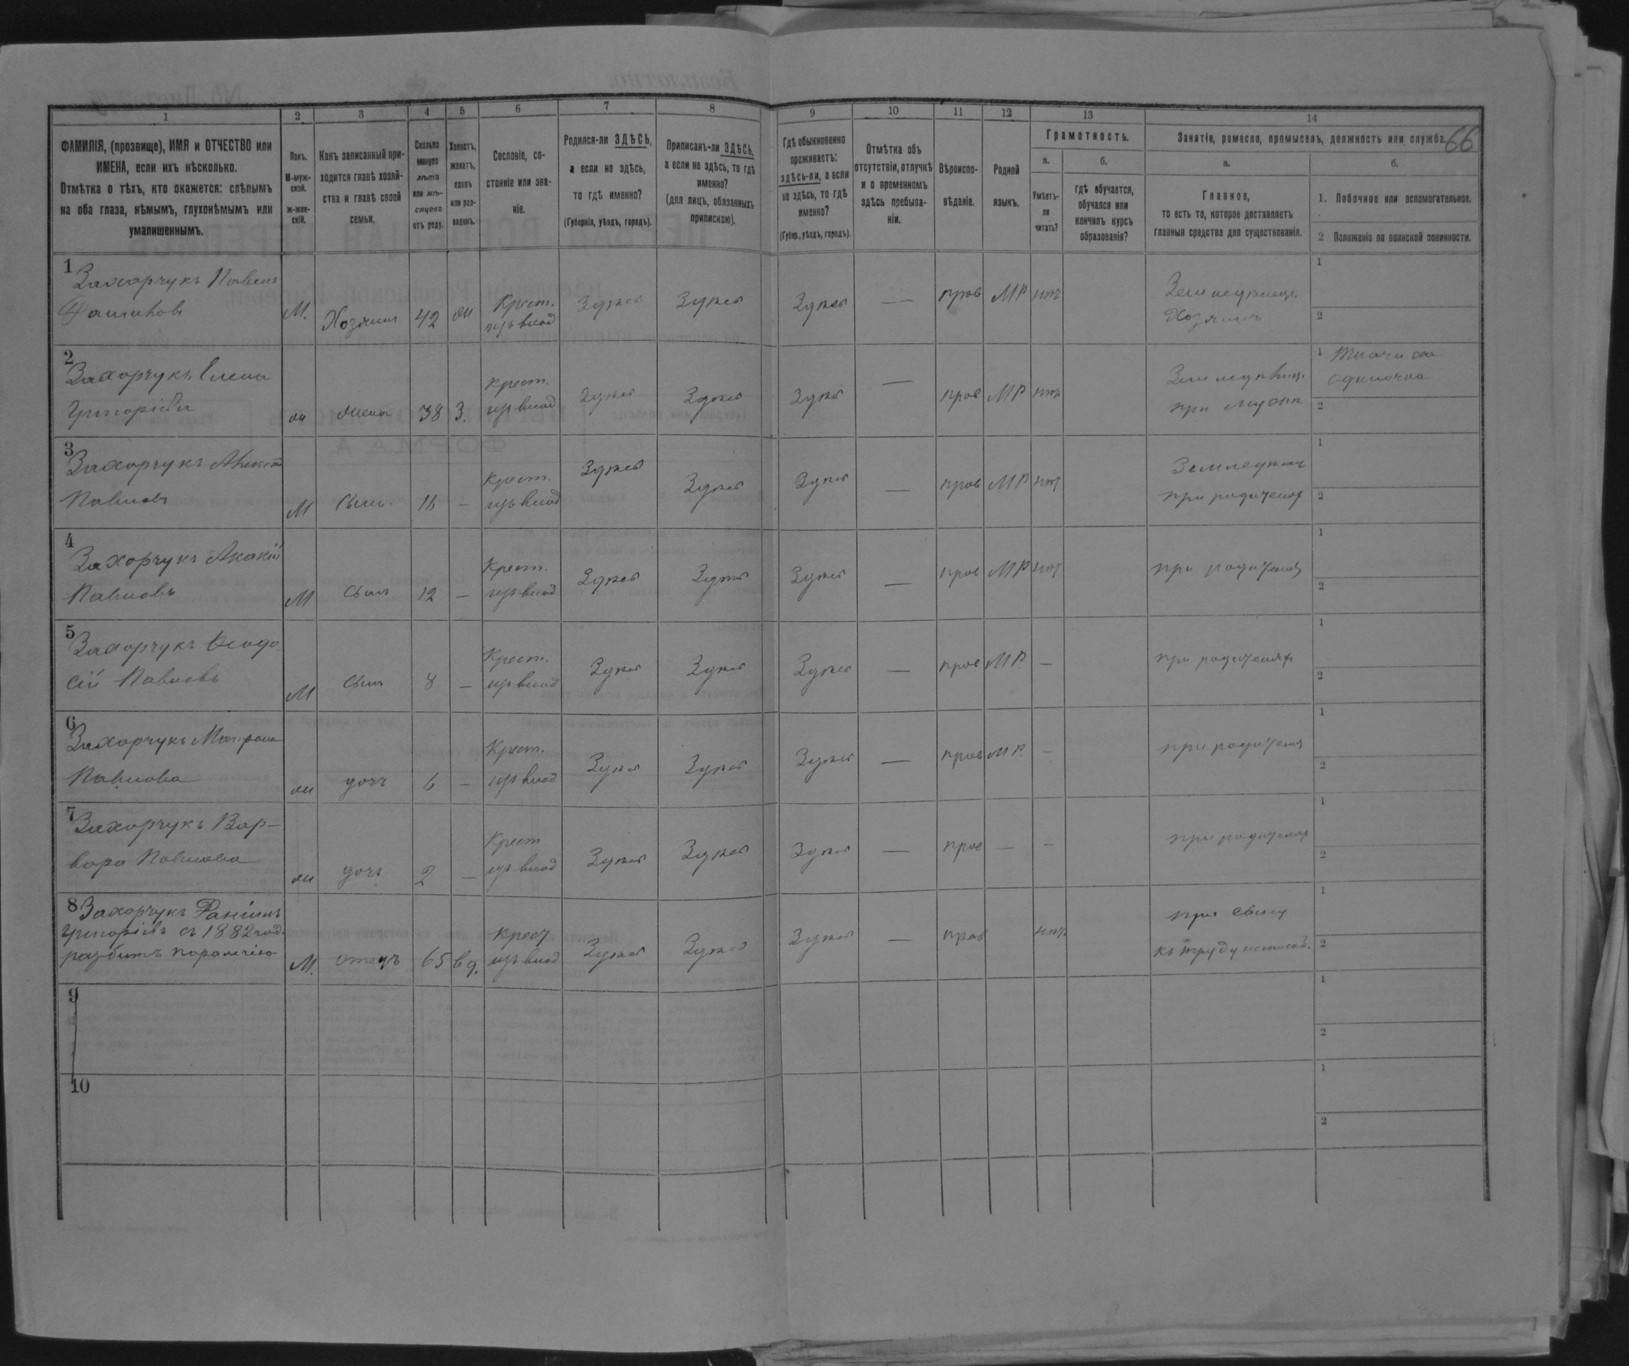 66
1 2 3 4 5 6 7 8 9 10 11 12 13 14
ФАМИЛІЯ, (прозвище), ИМЯ и ОТЧЕСТВО или
ИМЕНА, если ихъ нѣсколько.
Отмѣтка о тѣхъ, кто окажется: слѣпымъ
на оба глаза, нѣмымъ, глухонѣмымъ или
умалишеннымъ.
Полъ.
М-муж-
ской.
ж-жен-
скій.
Какъ записанный при-
ходится главѣ хозяй-
ства и главѣ своей
семьи.
Сколько
минуло
лѣтъ
или мѣ-
сяцевъ
отъ роду.
Холостъ,
женатъ,
вдовъ
или раз-
веденъ.
Сословіе, со-
стояніе или зва-
ніе.
Родился-ли ЗДѢСЬ,
а если не здѣсь,
то гдѣ именно?
(Губернія, уѣздъ, городъ).
Приписанъ-ли ЗДѢСЬ,
а если не здѣсь, то гдѣ
именно?
(для лицъ, обязанныхъ
припискою).
Гдѣ обыкновенно
проживаетъ:
здѣсь-ли, а если
не здѣсь, то гдѣ
именно?
(Губер., уѣздъ, городъ).
Отмѣтка объ
отсутствіи, отлучкѣ
и о временномъ
здѣсь пребыва-
ніи.
Вѣроиспо-
вѣданіе.
Родной
языкъ.
Грамотность.
а.
Умѣетъ-
ли
читать?
б.
гдѣ обучается,
обучался или
кончилъ курсъ
образованія?
Занятіе, ремесло, промыселъ, должность или служба.
а.
Главное,
то есть то, которое доставляетъ
главныя средства для существованія.
б.
1. Побочное или вспомогательное.
2 Положеніе по воинской повинности.
1
Захорчукъ Павелъ
М. Хозяинъ 42 жн Крест. изъ влад Здѣсь Здѣсь Здѣсь — прав МР нѣтъ
Хозяинъ
1
2
2
Захорчукъ Елена
Григоріева
ж жена 38 З. Крест. изъ влад Здѣсь Здѣсь Здѣсь — прав МР нѣт
при мужѣ
1
2
3
Захорчукъ
Павловъ
М Сынъ — Крест. изъ влад Здѣсь Здѣсь Здѣсь — прав МР нѣт
при родителях
1
2
4
Захорчукъ Акакій
Павловъ
М Сынъ 12 — Крест. изъ влад Здѣсь Здѣсь Здѣсь — прав МР нѣт
при родителях
1
2
5
Захорчукъ Ѳеодо
сій Павловъ
М Сынъ 8 — Крест. изъ влад Здѣсь Здѣсь Здѣсь — прав МР —
при родителях
1
2
6
Захорчукъ Матрона
Павлова
ж дочь 6 — Крест. изъ влад Здѣсь Здѣсь Здѣсь — прав МР —
при родителях
1
2
7
Захорчукъ Вар-
вара Павлова
ж дочь 2 — Крест изъ влад Здѣсь Здѣсь Здѣсь — прав — —
при родителях
1
2
8
Захорчукъ
Григоріевъ съ 1882 года
разбитъ параличемъ
М. отецъ 65 вд. Крест изъ влад Здѣсь Здѣсь Здѣсь — прав нѣт
при сыну
къ труду неспособ.
1
2
9
1
2
10
1
2